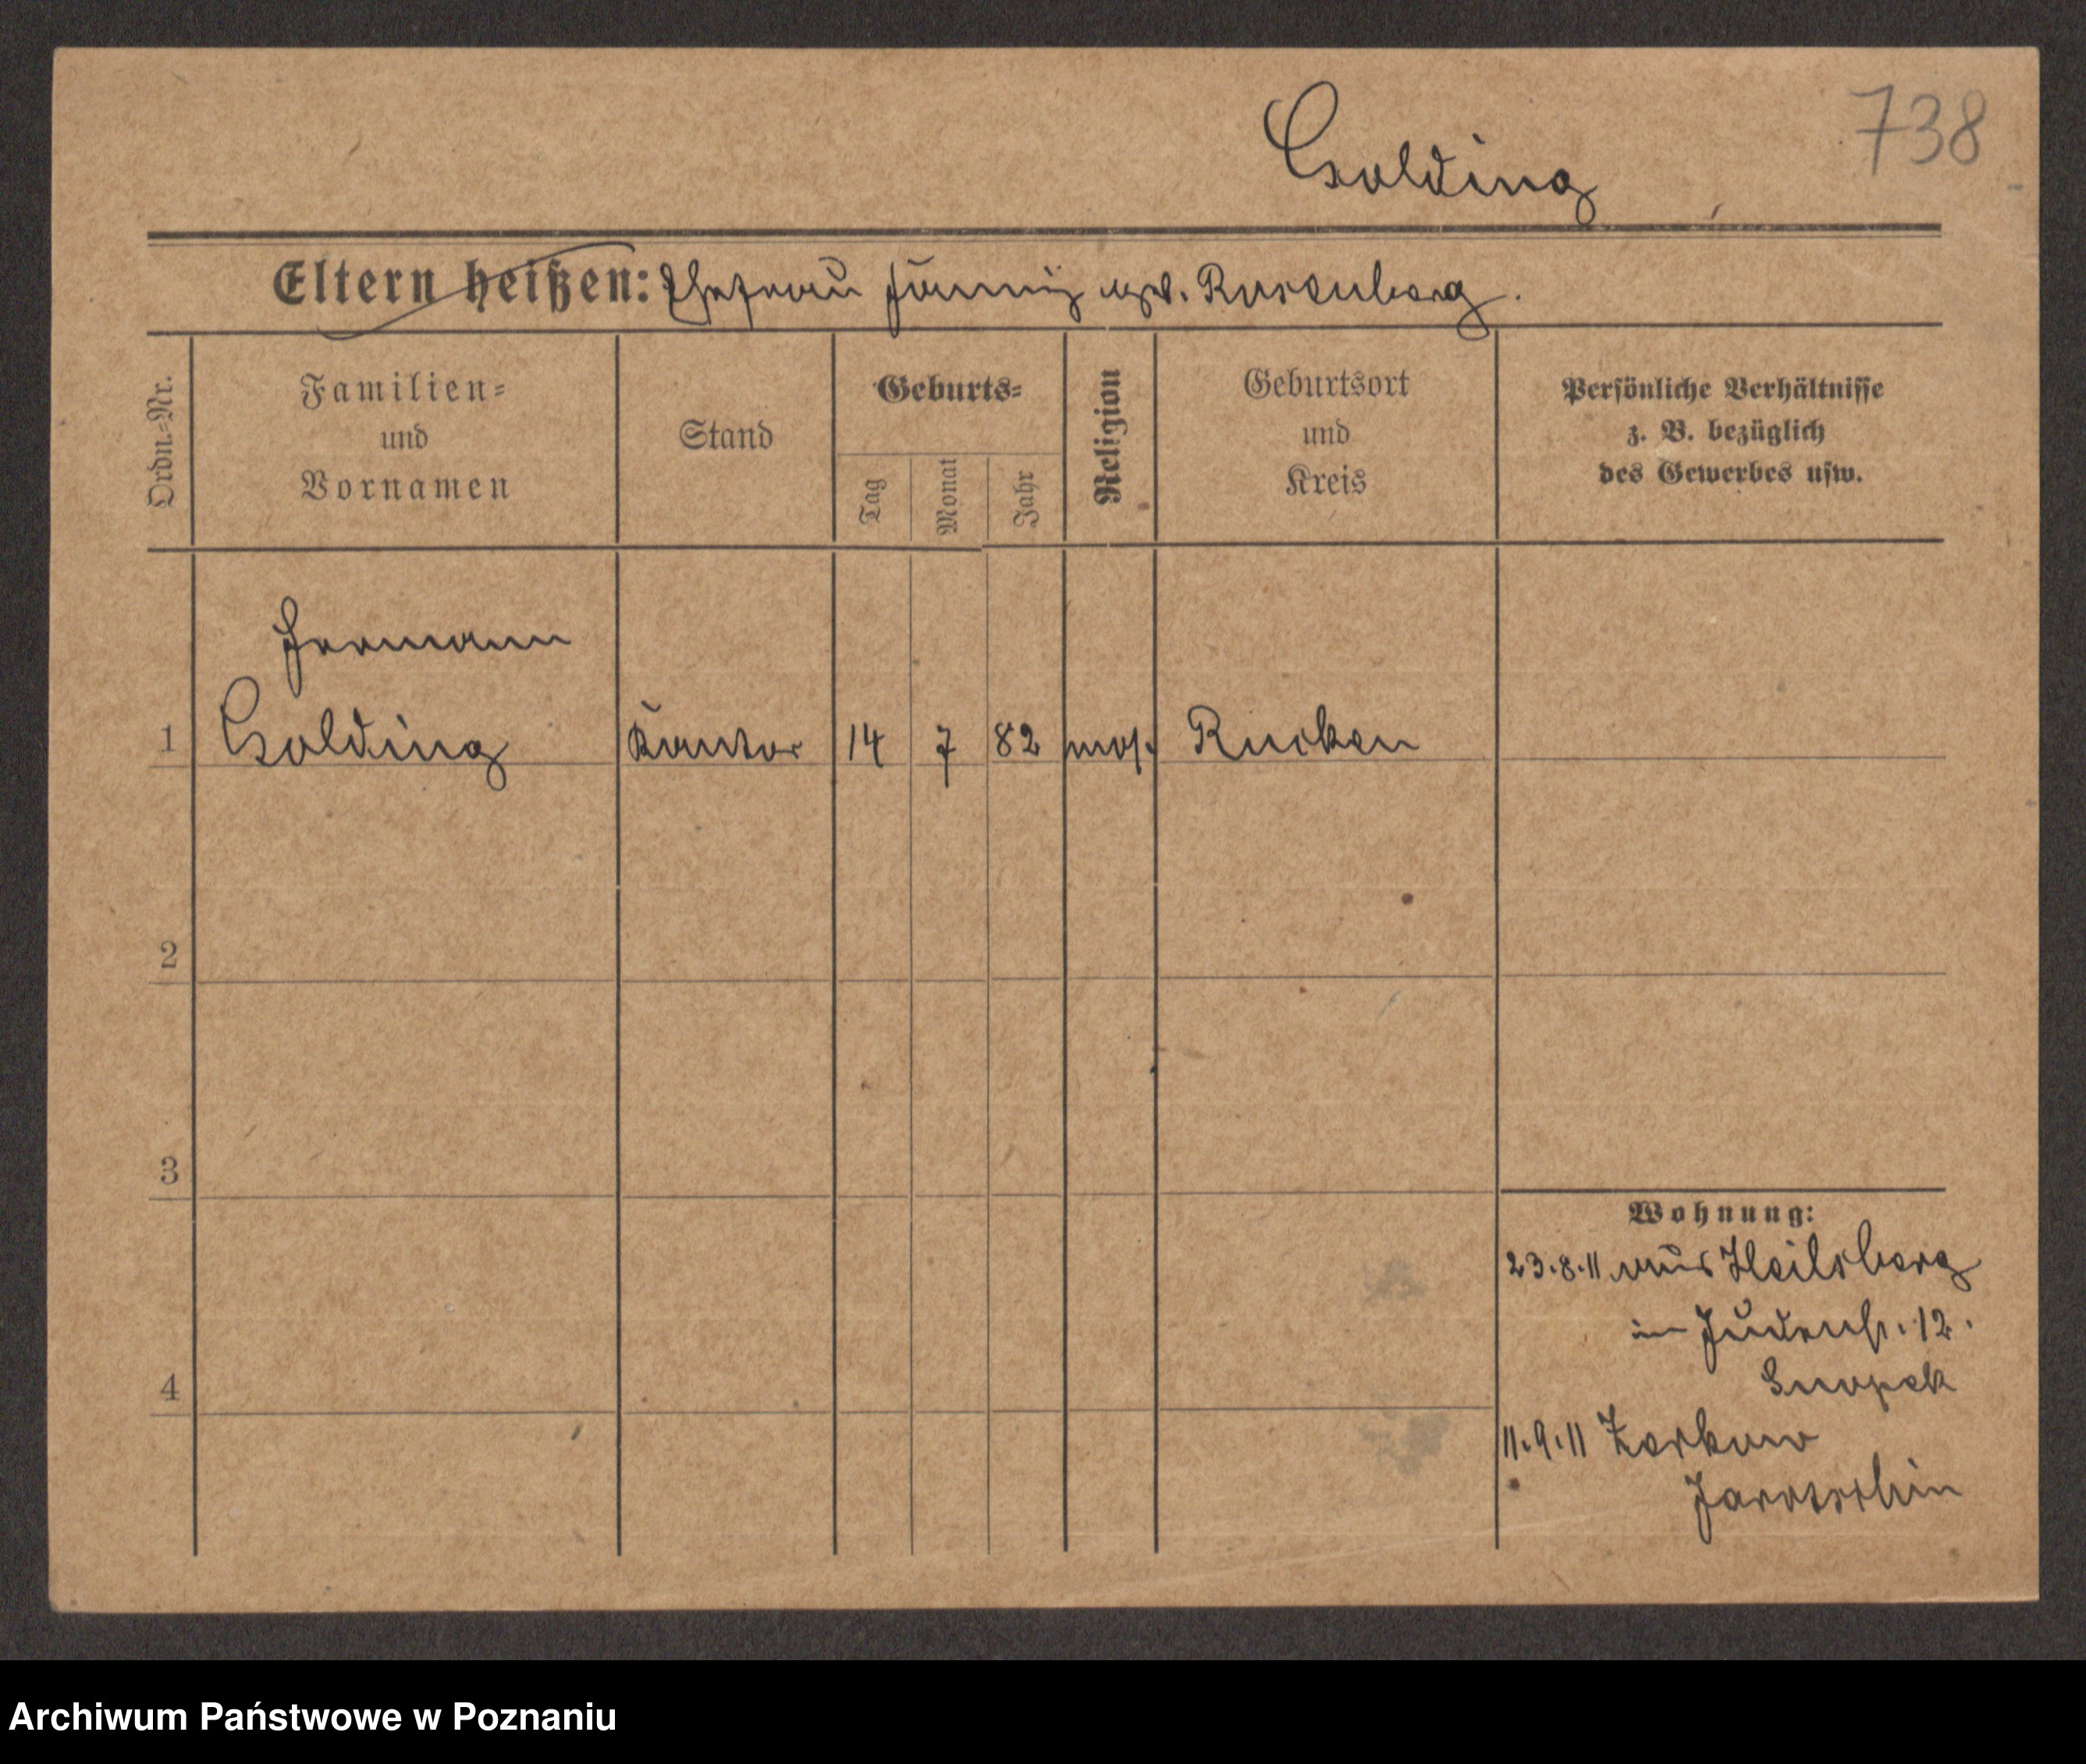 738
Golding
Eltern heißen: Ehefrau Fanny geb. Rosenberg.
Ordn.-Nr.
Familien-
und
Vornamen
Stand
Geburts-
Tag
Monat
Jahr
Religion
Geburtsort
und
Kreis
Persönliche Verhältnisse
z. B. bezüglich
des Gewerbes usw.
Hermann
1 Golding Kantor 14 7 82 mos. Rucken
2
3
4
Wohnung:
23.8.11 aus Heilsberg
in Judenstr. 12.
Snopek
11.9.11 Zerkow
Jarotschin
Archiwum Państwowe w Poznaniu